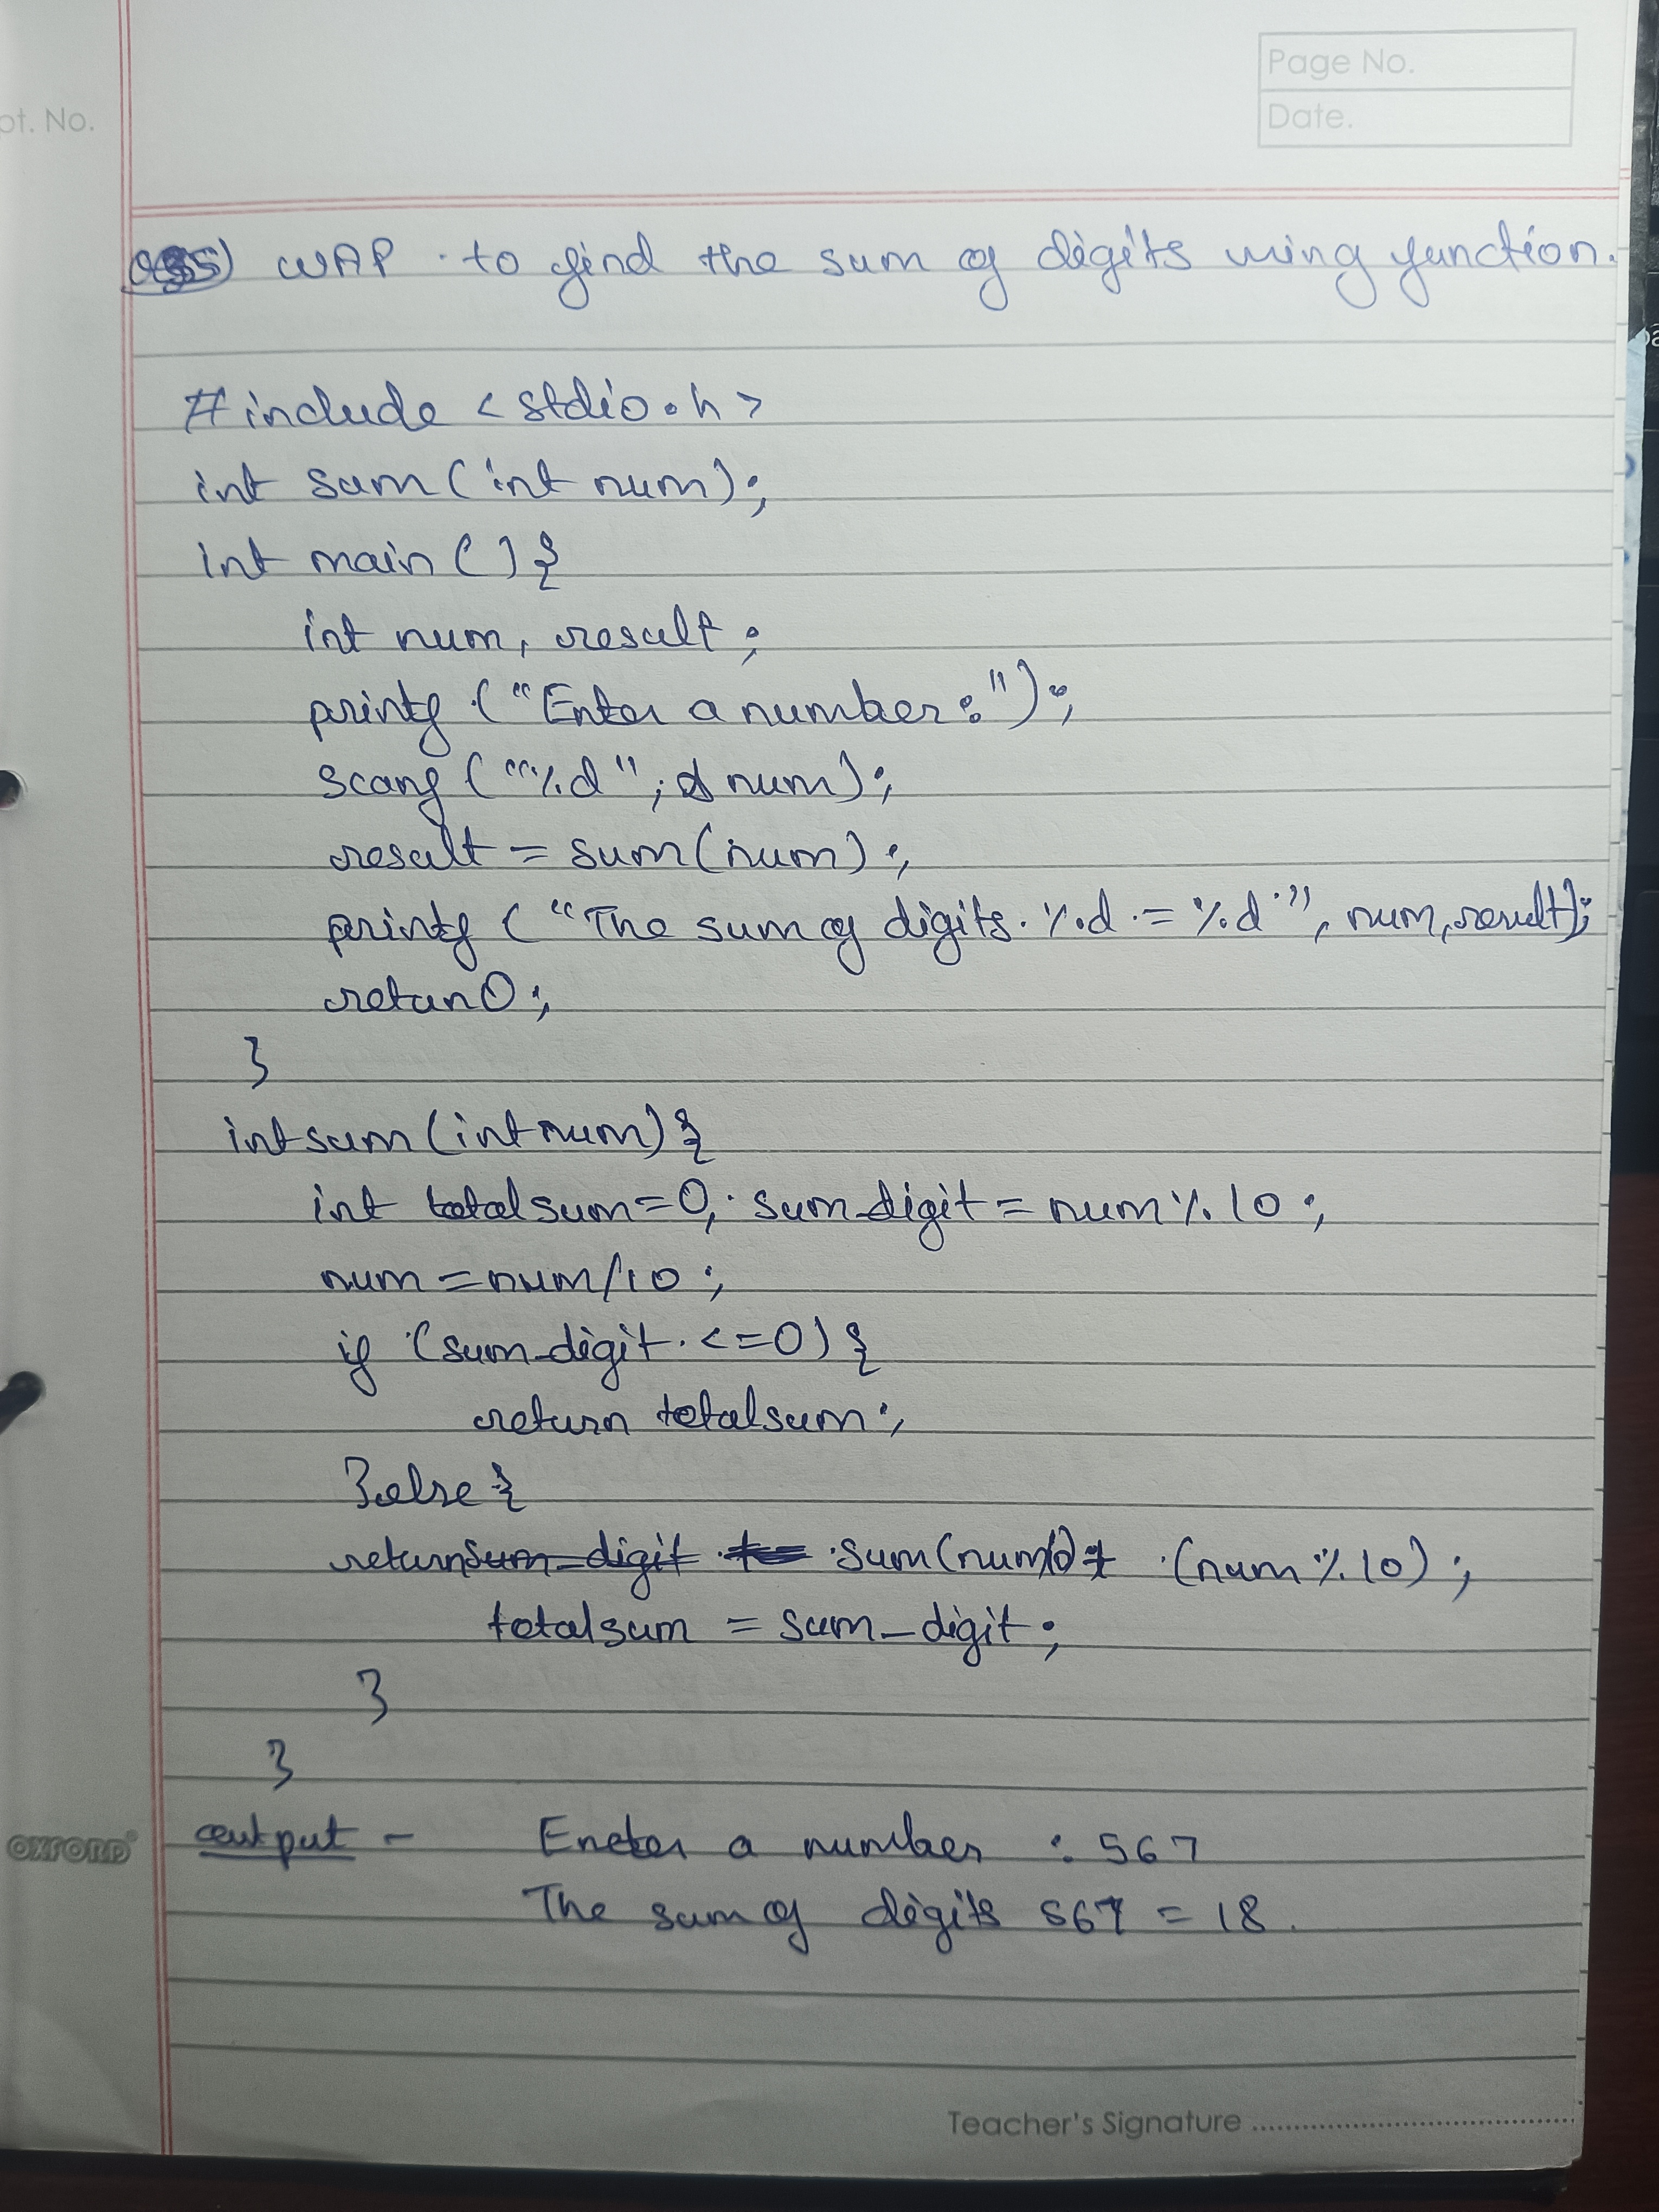 Page No.
Date.
pt. No.
Q5) WAP to find the sum of digits using function.
#include <stdio.h>
int sum(int num);
int main(){
int num, result;
printf("Enter a number:");
scanf("%d", & num);
result = sum(num);
printf("The sum of digits %d = %d", num, result);
retun 0;
}
int sum(int num){
int totalsum=0, sum_digit = num%10;
num=num/10;
if (sum_digit <=0){
return totalsum;
}else{
return sum_digit sum(num/10)+ (num%10);
totalsum = sum_digit;
}
}
output - Eneter a number : 567
The sum of digits 567 = 18.
OXFORD
Teacher's Signature